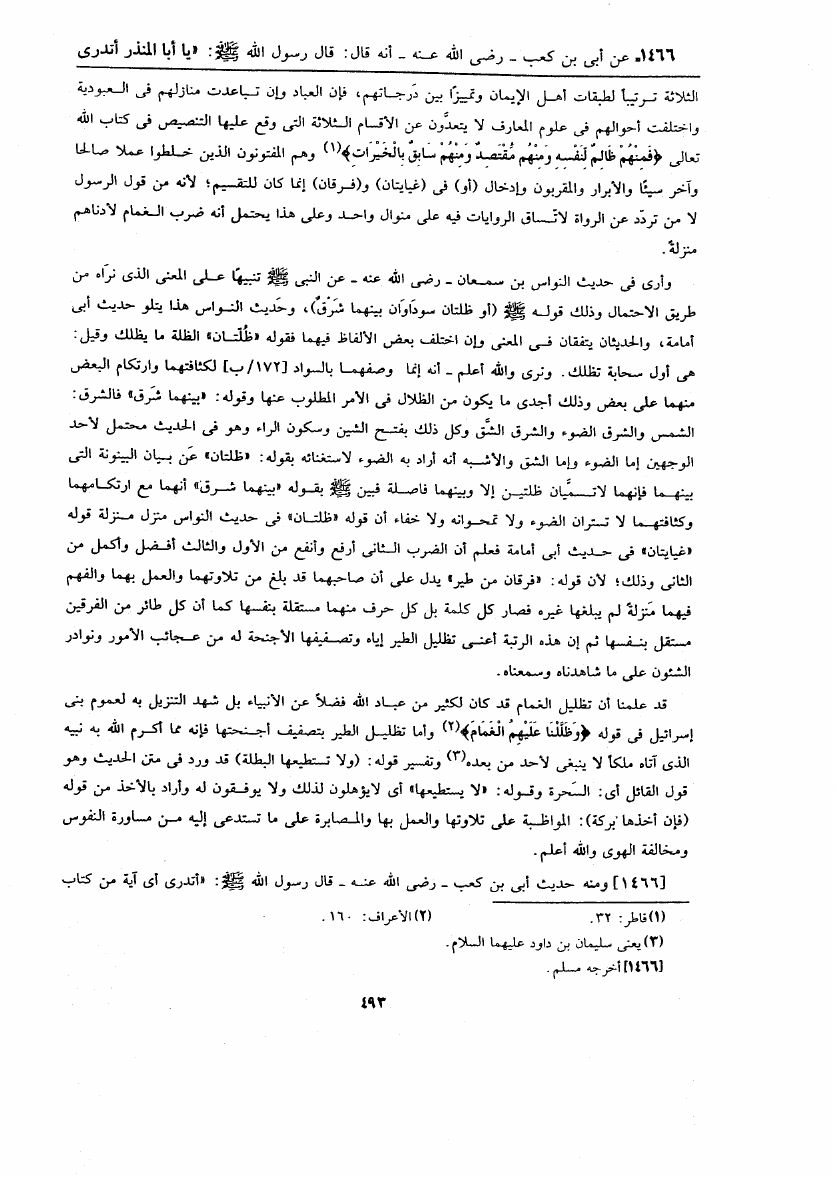 ١٤٦٦ـ عن أبى بن كعب ـ رضى الله عنه ـ أنه قال: قال رسول الله ﷺ: «يا أبا المنذر أتدرى
الثلاثة ترتيباً لطبقات أهل الإيمان وتمييزًا بين دَرجاتهم، فإن العباد وإن تباعدت منازلهم فى العبودية
واختلفت أحوالهم فى علوم المعارف لا يتعدَّون عن الأقسام الثلاثة التى وقع عليها التنصيص فى كتاب الله
تعالى ﴿فَمِنْهُمْ ظَالِمٌ لِنَفْسِهِ وَمِنْهُم مُّقْتَصِدٌ وَمِنْهُمْ سَابِقٌ بِالْخَيْرَاتِ﴾(١) وهم المفتونون الذين خلطوا عملا صالحا
وآخر سيئًا والأبرار والمقربون وإدخال (أو) فى (غيايتان) و(فرقان) إنما كان للتقسيم؛ لأنه من قول الرسول
لا من تردّد عن الرواة لاتّساق الروايات فيه على منوال واحد وعلى هذا يحتمل أنه ضرب الغمام لأدناهم
منزلةً.
وأرى فى حديث النواس بن سمعان ـ رضى الله عنه ـ عن النبى ﷺ تنبيهًا على المعنى الذى نرَاه من
طريق الاحتمال وذلك قوله ﷺ (أو ظلتان سودَاوَان بينهما شَرْقٌ)، وحَديث النواس هذا يتلو حديث أبى
أمامة، والحديثان يتفقان فى المعنى وإن اختلف بعض الألفاظ فيهما فقوله «ظُلّتان» الظلة ما يظلك وقيل:
هى أول سحابة تظلك. ونرى والله أعلم ـ أنه إنما وصفهما بالسواد [١٧٢/ ب] لكثافتهما وارتكام البعض
منهما على بعض وذلك أجدى ما يكون من الظلال فى الأمر المطلوب عنها وقوله: «بينهما شَرق» فالشرق:
الشمس والشرق الضوء والشرق الشَّق وكل ذلك بفتح الشين وسكون الراء وهو فى الحديث محتمل لأحد
الوجهين إما الضوء وإما الشق والأشبه أنه أراد به الضوء لاستغنائه بقوله: «ظلتان» عَن بيان البينونة التى
بينهما فإنهما لاتسميَّان ظلتين إلا وبينهما فاصلة فبين ﷺ بقوله «بينهما شرق» أنهما مع ارتكامهما
وكثافتهما لا تستران الضوء ولا تمحوانه ولا خفاء أن قوله «ظلتان» فى حديث النواس منزل منزلة قوله
«غيايتان» فى حديث أبى أمامة فعلم أن الضرب الثانى أرفع وأنفع من الأول والثالث أفضل وأكمل من
الثانى وذلك؛ لأن قوله: «فرقان من طير» يدل على أن صاحبهما قد بلغ من تلاوتهما والعمل بهما والفهم
فيهما مَنزلةً لم يبلغها غيره فصار كل كلمة بل كل حرف منهما مستقلة بنفسها كما أن كل طائر من الفرقين
مستقل بنفسها ثم إن هذه الرتبة أعنى تظليل الطير إياه وتصفيفها الأجنحة له من عجائب الأمور ونوادر
الشئون على ما شاهدناه وسمعناه.
قد علمنا أن تظليل الغمام قد كان لكثير من عباد الله فضلاً عن الأنبياء بل شهد التنزيل به لعموم بنى
إسرائيل فى قوله ﴿وَظَلَّلْنَا عَلَيْهِمُ الْغَمَامَ﴾(٢) وأما تظليل الطير بتصفيف أجنحتها فإنه مما أكرم الله به نبيه
الذى آتاه ملكاً لا ينبغى لأحد من بعده(٣) وتفسير قوله: (ولا تستطيعها البطلة) قد ورد فى متن الحديث وهو
قول القائل أى: السَحرة وقوله: «لا يستطيعها» أى لايؤهلون لذلك ولا يوفقون له وأراد بالأخذ من قوله
(فإن أخذها بركة): المواظبة على تلاوتها والعمل بها والمصابرة على ما تستدعى إليه من مساورة النفوس
ومخالفة الهوى والله أعلم.
[١٤٦٦] ومنه حديث أبى بن كعب ـ رضى الله عنه ـ قال رسول الله ﷺ: «أتدرى أى آية من كتاب
(١) فاطر: ٣٢. (٢) الأعراف: ١٦٠.
(٣) يعنى سليمان بن داود عليهما السلام.
[١٤٦٦] أخرجه مسلم.
٤٩٣